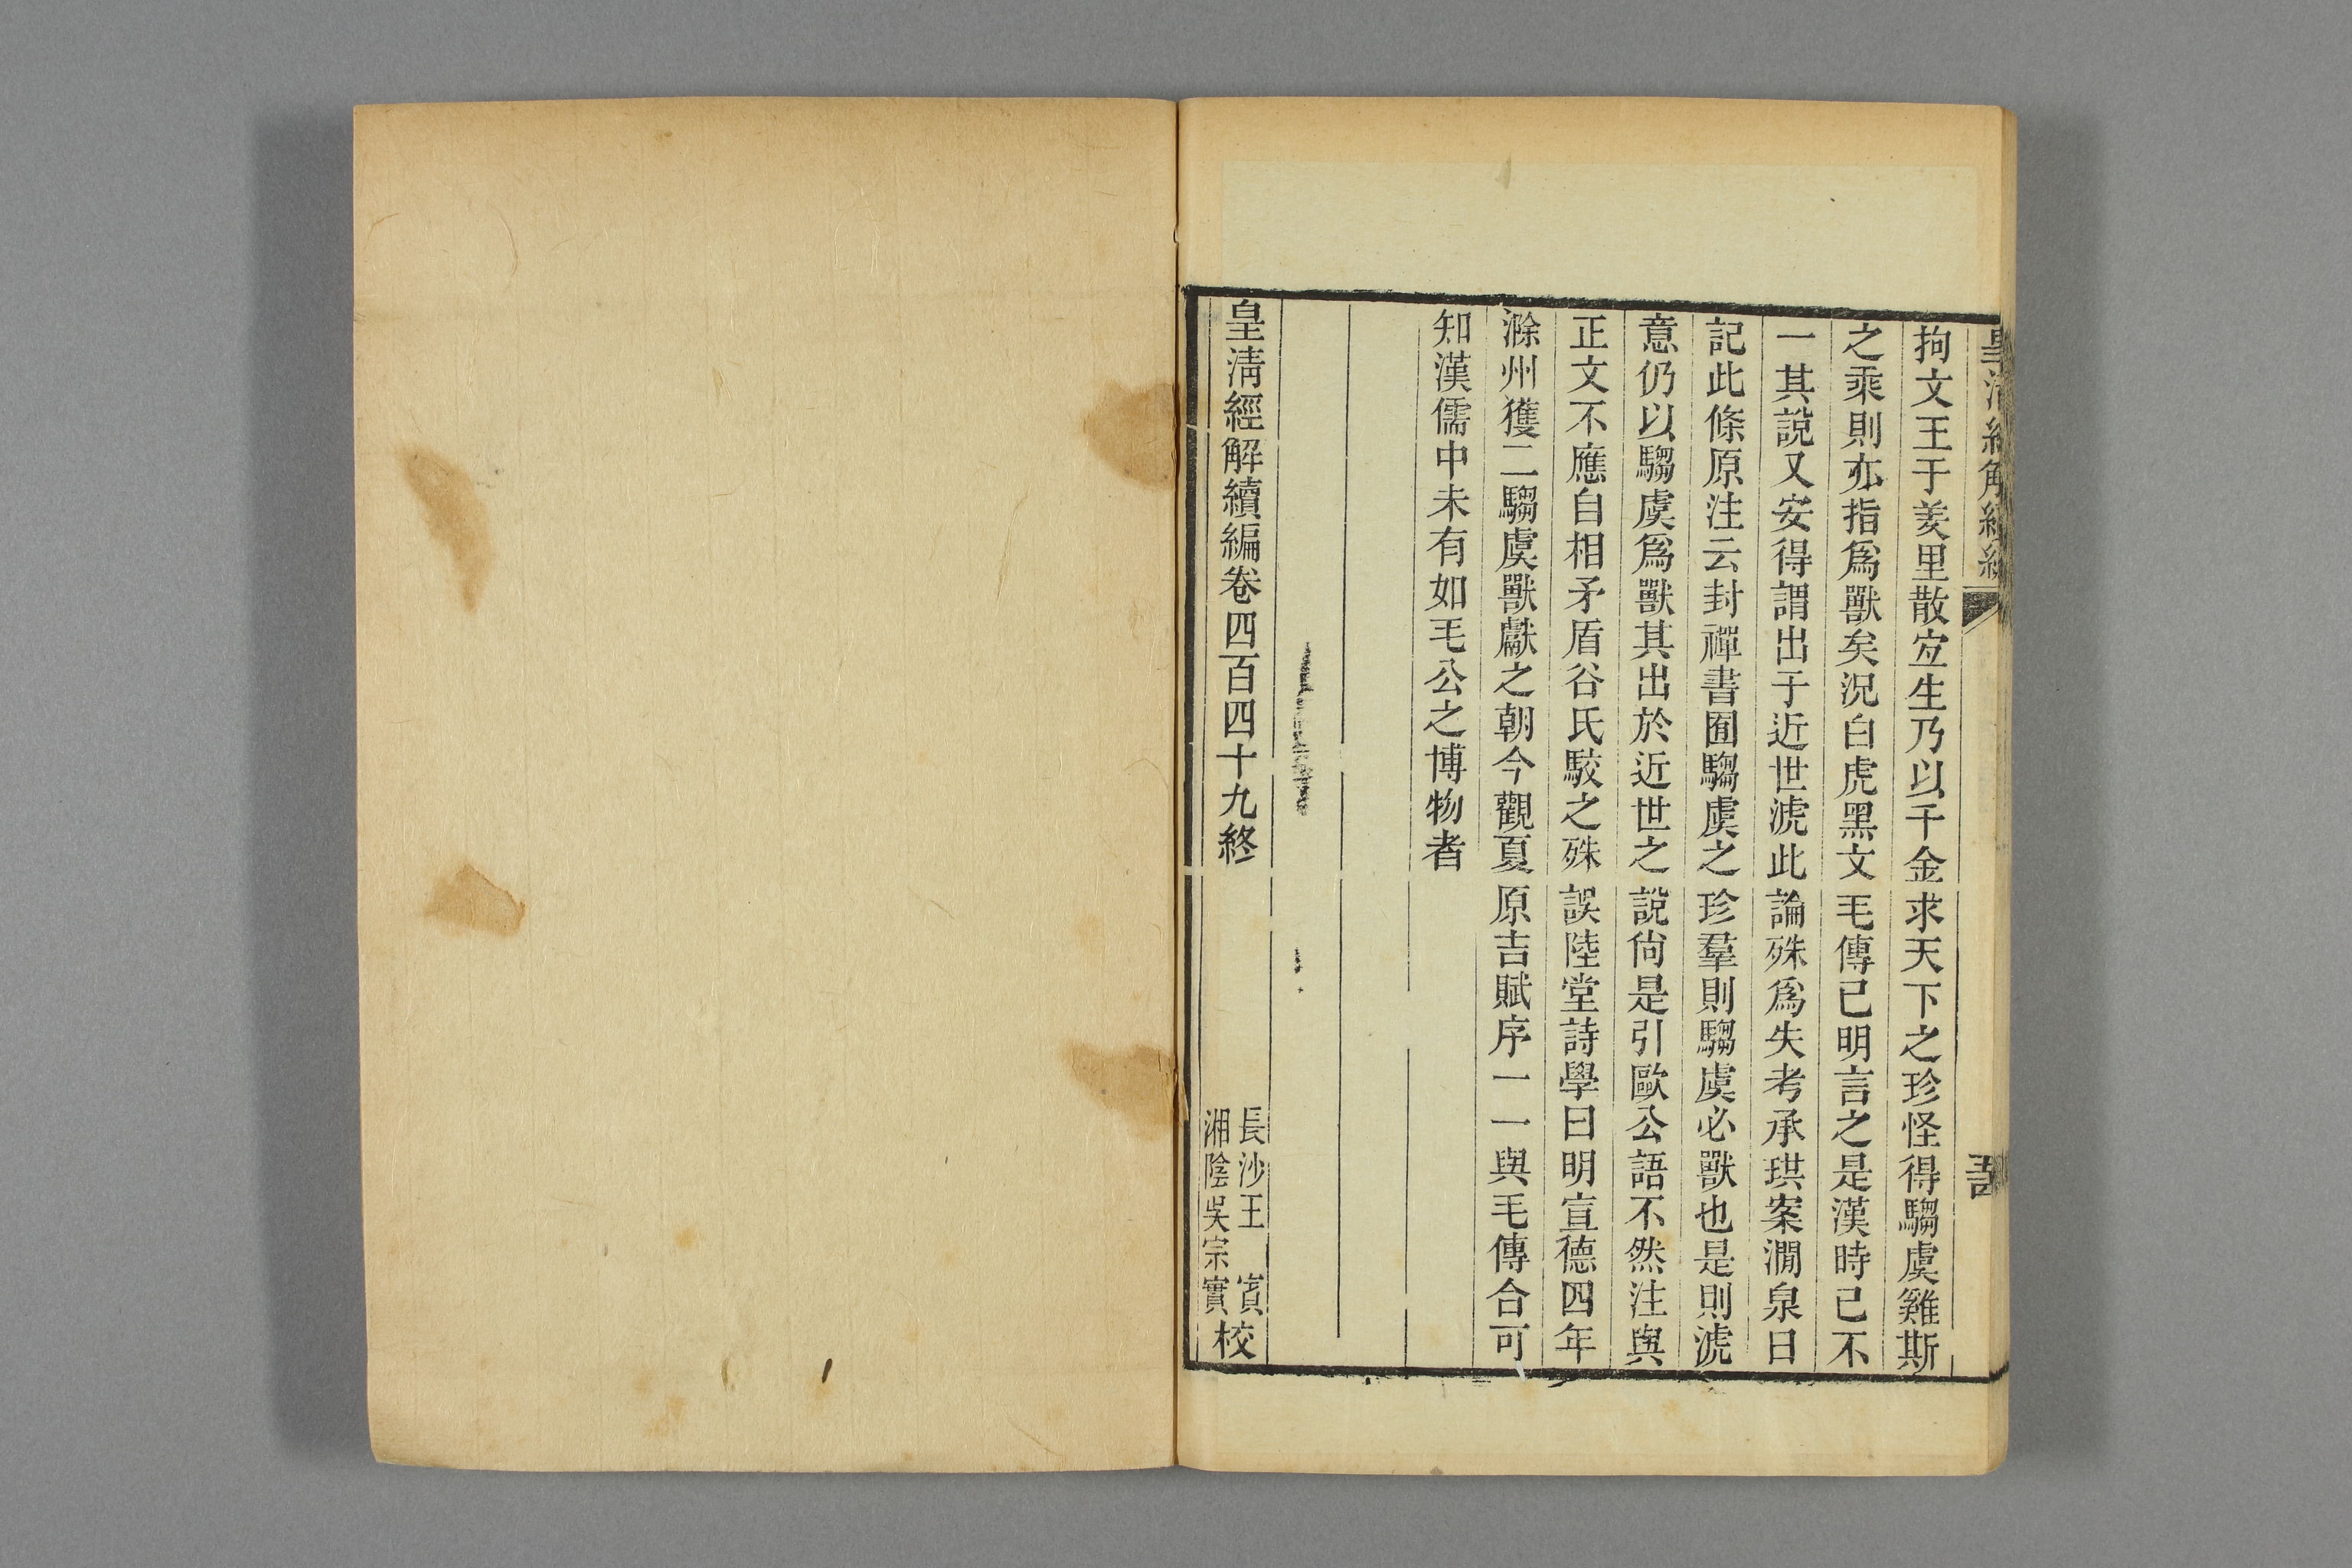 皇清經解續編
拘文王于羑里散宜生乃以千金求天下之珍怪得騶虞雞斯
之乘則亦指爲獸矣況白虎黑文毛傳已明言之是漢時已不
一其說又安得謂出于近世淲此論殊爲失考承珙案澗泉日
記此條原注云封禪書囿騶虞之珍羣則騶虞必獸也是則淲
意仍以騶虞爲獸其出於近世之說尙是引歐公語不然注與
正文不應自相矛盾谷氏駮之殊誤陸堂詩學曰明宣德四年
滁州獲二騶虞獸獻之朝今觀夏原吉賦序一一與毛傳合可
知漢儒中未有如毛公之博物者
皇淸經解續編卷四百四十九終
長沙王　賓
湘陰吳宗實
校